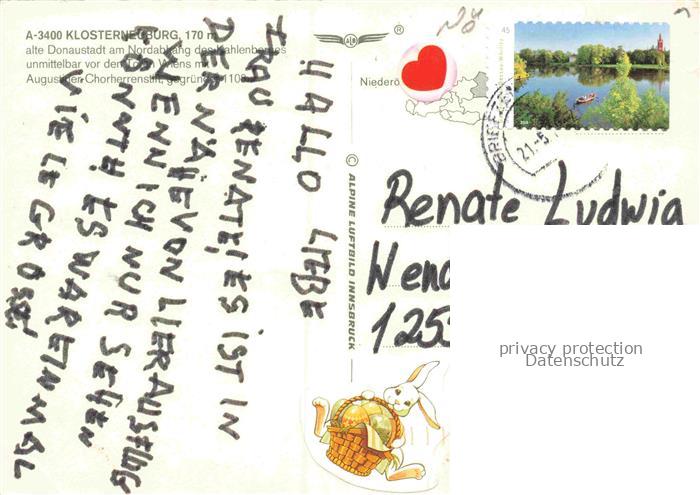 A-3400 KLOSTERNEUBURG, 170 m
alte Donaustadt am Nordabhang des Kahlenberges
unmittelbar vor den Toren Wiens mit
Augustiner-Chorherrenstift, gegründet 1108
HALLO LIEBE
FRAU RENATE! ES IST IN
DER NÄHE VON
WENN ICH NUR SEHEN
KONNTE ES WAR EINMAL
VIELE GRÜSSE
© ALPINE LUFTBILD INNSBRUCK
Niederö
45
BRIEFZE
21.-5.
Renate Ludwig
Wend
125
privacy protection
Datenschutz